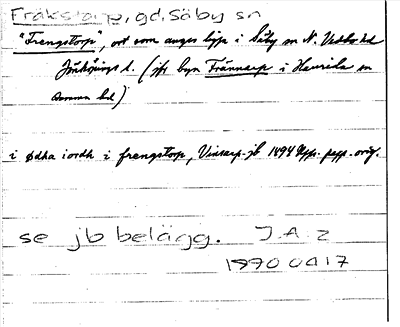 Fräkstorp, gd, Säby sn
"Frengstorp", ort som anges ligga i Säby sn N. Vedbo hd
Jönköpings l. (jfr byn Frännarp i Haurida sn
samma hd)
i ødha iordh i frengstorp, Vinsarp. jb 1494 Upps. papp. orig.
se jb belägg. J.A. 2
19700417